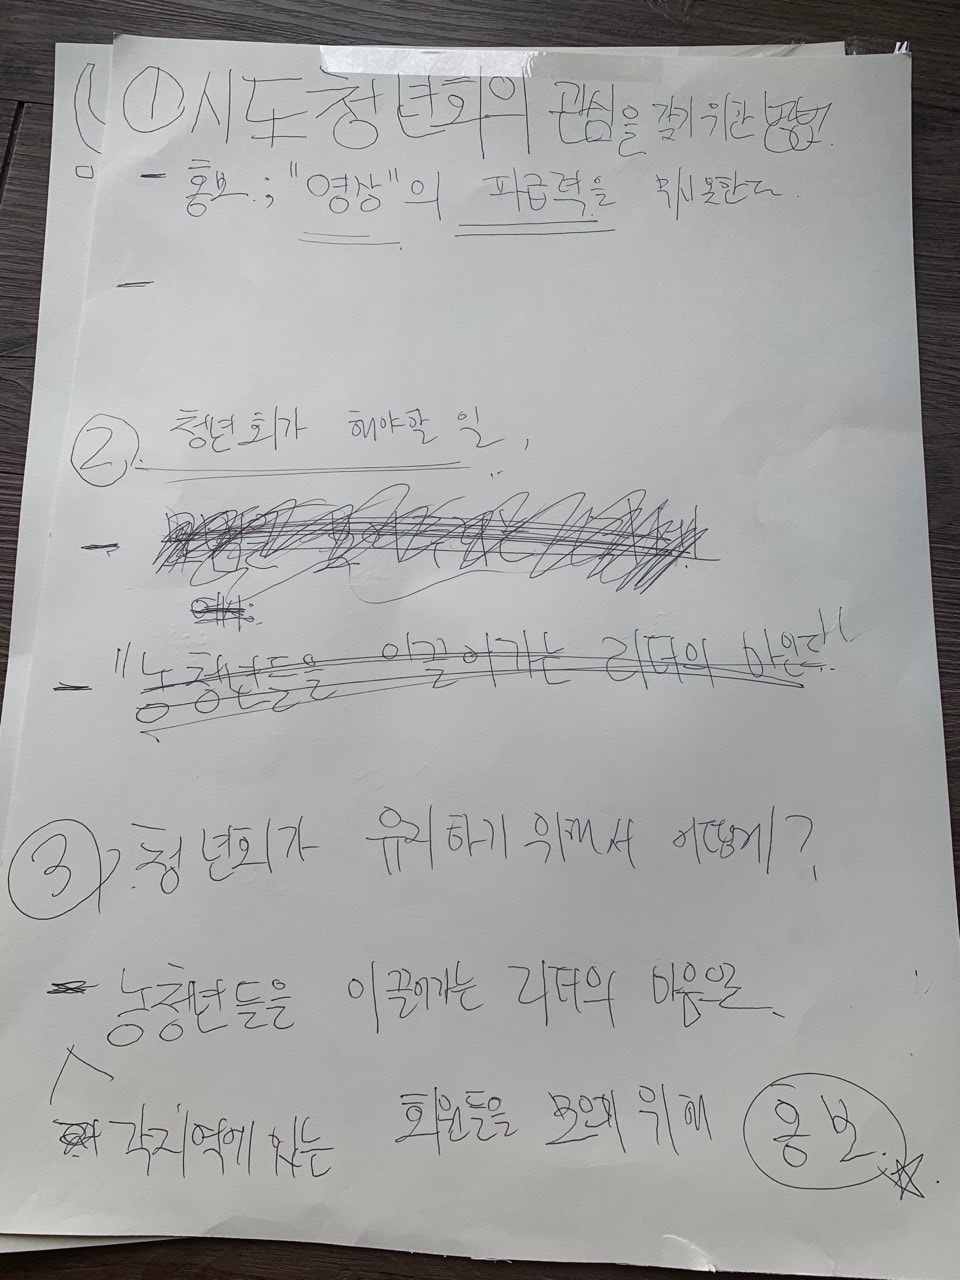 ① 시도청년회의 관심을 갖기 위한 방법.
- 홍보 ; "영상"의 파급력을 무시못한다.
-
②. 청년회가 해야할 일,
-
예시:
- "농청년들을 이끌어가는 리더의 마인드"
③. 청년회가 유리하기 위해서 어떻게?
- 농청년들을 이끌어가는 리더의 마음으로
각지역에 있는 회원들을 모으기 위해 홍보.